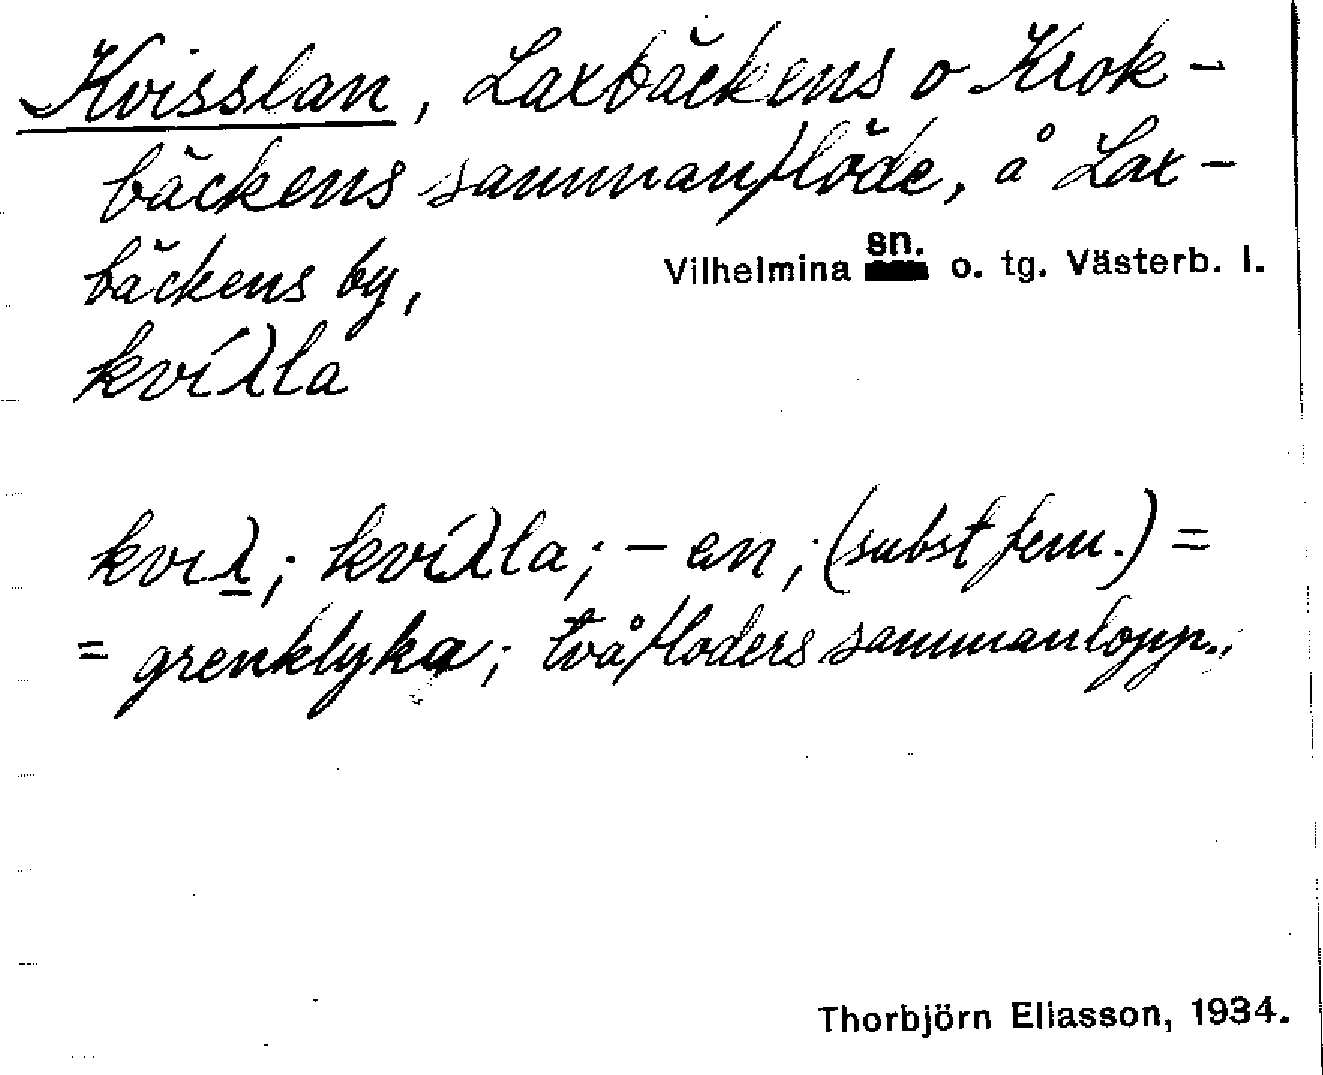 Kvisslan, Laxbäckens o Krok-
bäckens sammanflöde, å Lax-
bäckens by,
Vilhelmina sn. o. tg. Västerb. l.
kvíλla
kvıλ; kvíλla; – en; (subst fem.) =
= grenklyka; två floders sammanlopp.,
Thorbjörn Eliasson, 1934.